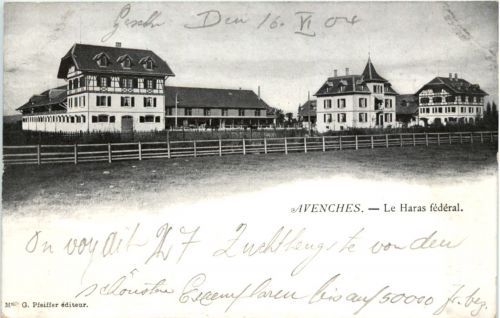 Gesch. Den 16. VI 04
AVENCHES. — Le Haras fédéral.
On voyait 47 Zuchthengste von den
schönsten Exemplaren bis auf 50000 fr. bez.
M^on G. Pfeiffer éditeur.